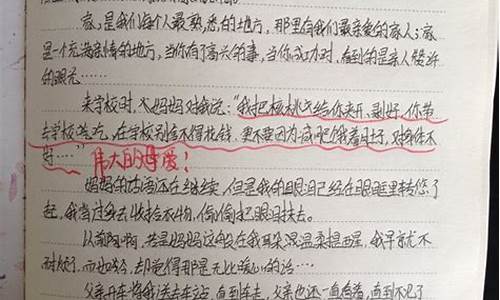 家，是我们每个人最熟悉的地方，那里有我们最亲爱的家人；家
是一个充满亲情的地方，当你有了高兴的事，当你成功时，看到的是亲人赞许
的眼光……
来学校时，妈妈对我说：“我把核桃给你夹开、剥好，你带
去学校吃，在学校别舍不得花钱，更不要因为减肥饿着肚子，对身体不
好……”伟大的母爱！
妈妈的话还在继续，但是我的眼泪已经在眼眶里转悠了
起，我当过身去收拾衣物，偷偷把眼泪抹去。
以前啊，若是妈妈这般在我耳朵温柔提醒，我早就不
耐烦了，而如今，却觉得那是无比暖心的话……
父亲开车将我送去车站，直到车走，父亲也还一直看着，直到不见了